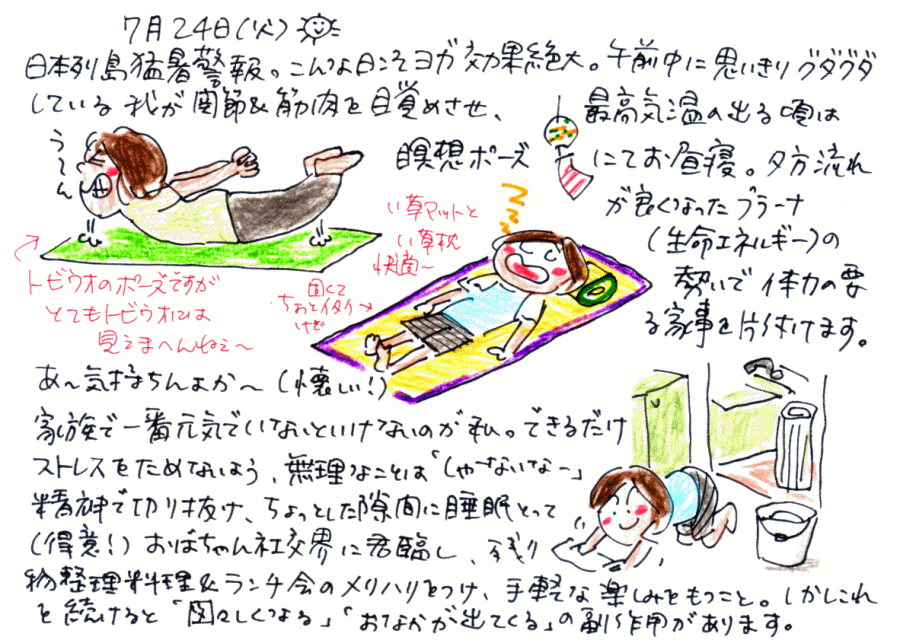 7月24日(火)
日本列島猛暑警報。こんな日こそヨガ効果絶大。午前中に思いきりグダグダ
している我が関節&筋肉を目覚めさせ、
最高気温の出る頃は
瞑想ポーズ
にてお昼寝。夕方流れ
が良くなったプラーナ
(生命エネルギー)の
勢いで体力の要
る家事を片付けます。
う〜ん
トビウオのポーズですが
とてもトビウオには
見えまへんねぇ〜
い草マットと
い草枕
快適〜
固くて
ちょとイタイ
けど
あ〜気持ちんよか〜(懐しい!)
家族で一番元気でいないといけないのが私。できるだけ
ストレスをためないよう、無理なことは「しゃーないなー」
精神で切り抜け、ちょっとした隙間に睡眠とって
(得意!)おばちゃん社交界に君臨し、残り
物整理料理&ランチ会のメリハリをつけ、手軽な楽しみをもつこと。しかしこれ
を続けると「図々しくなる」「おなかが出てくる」の副作用があります。